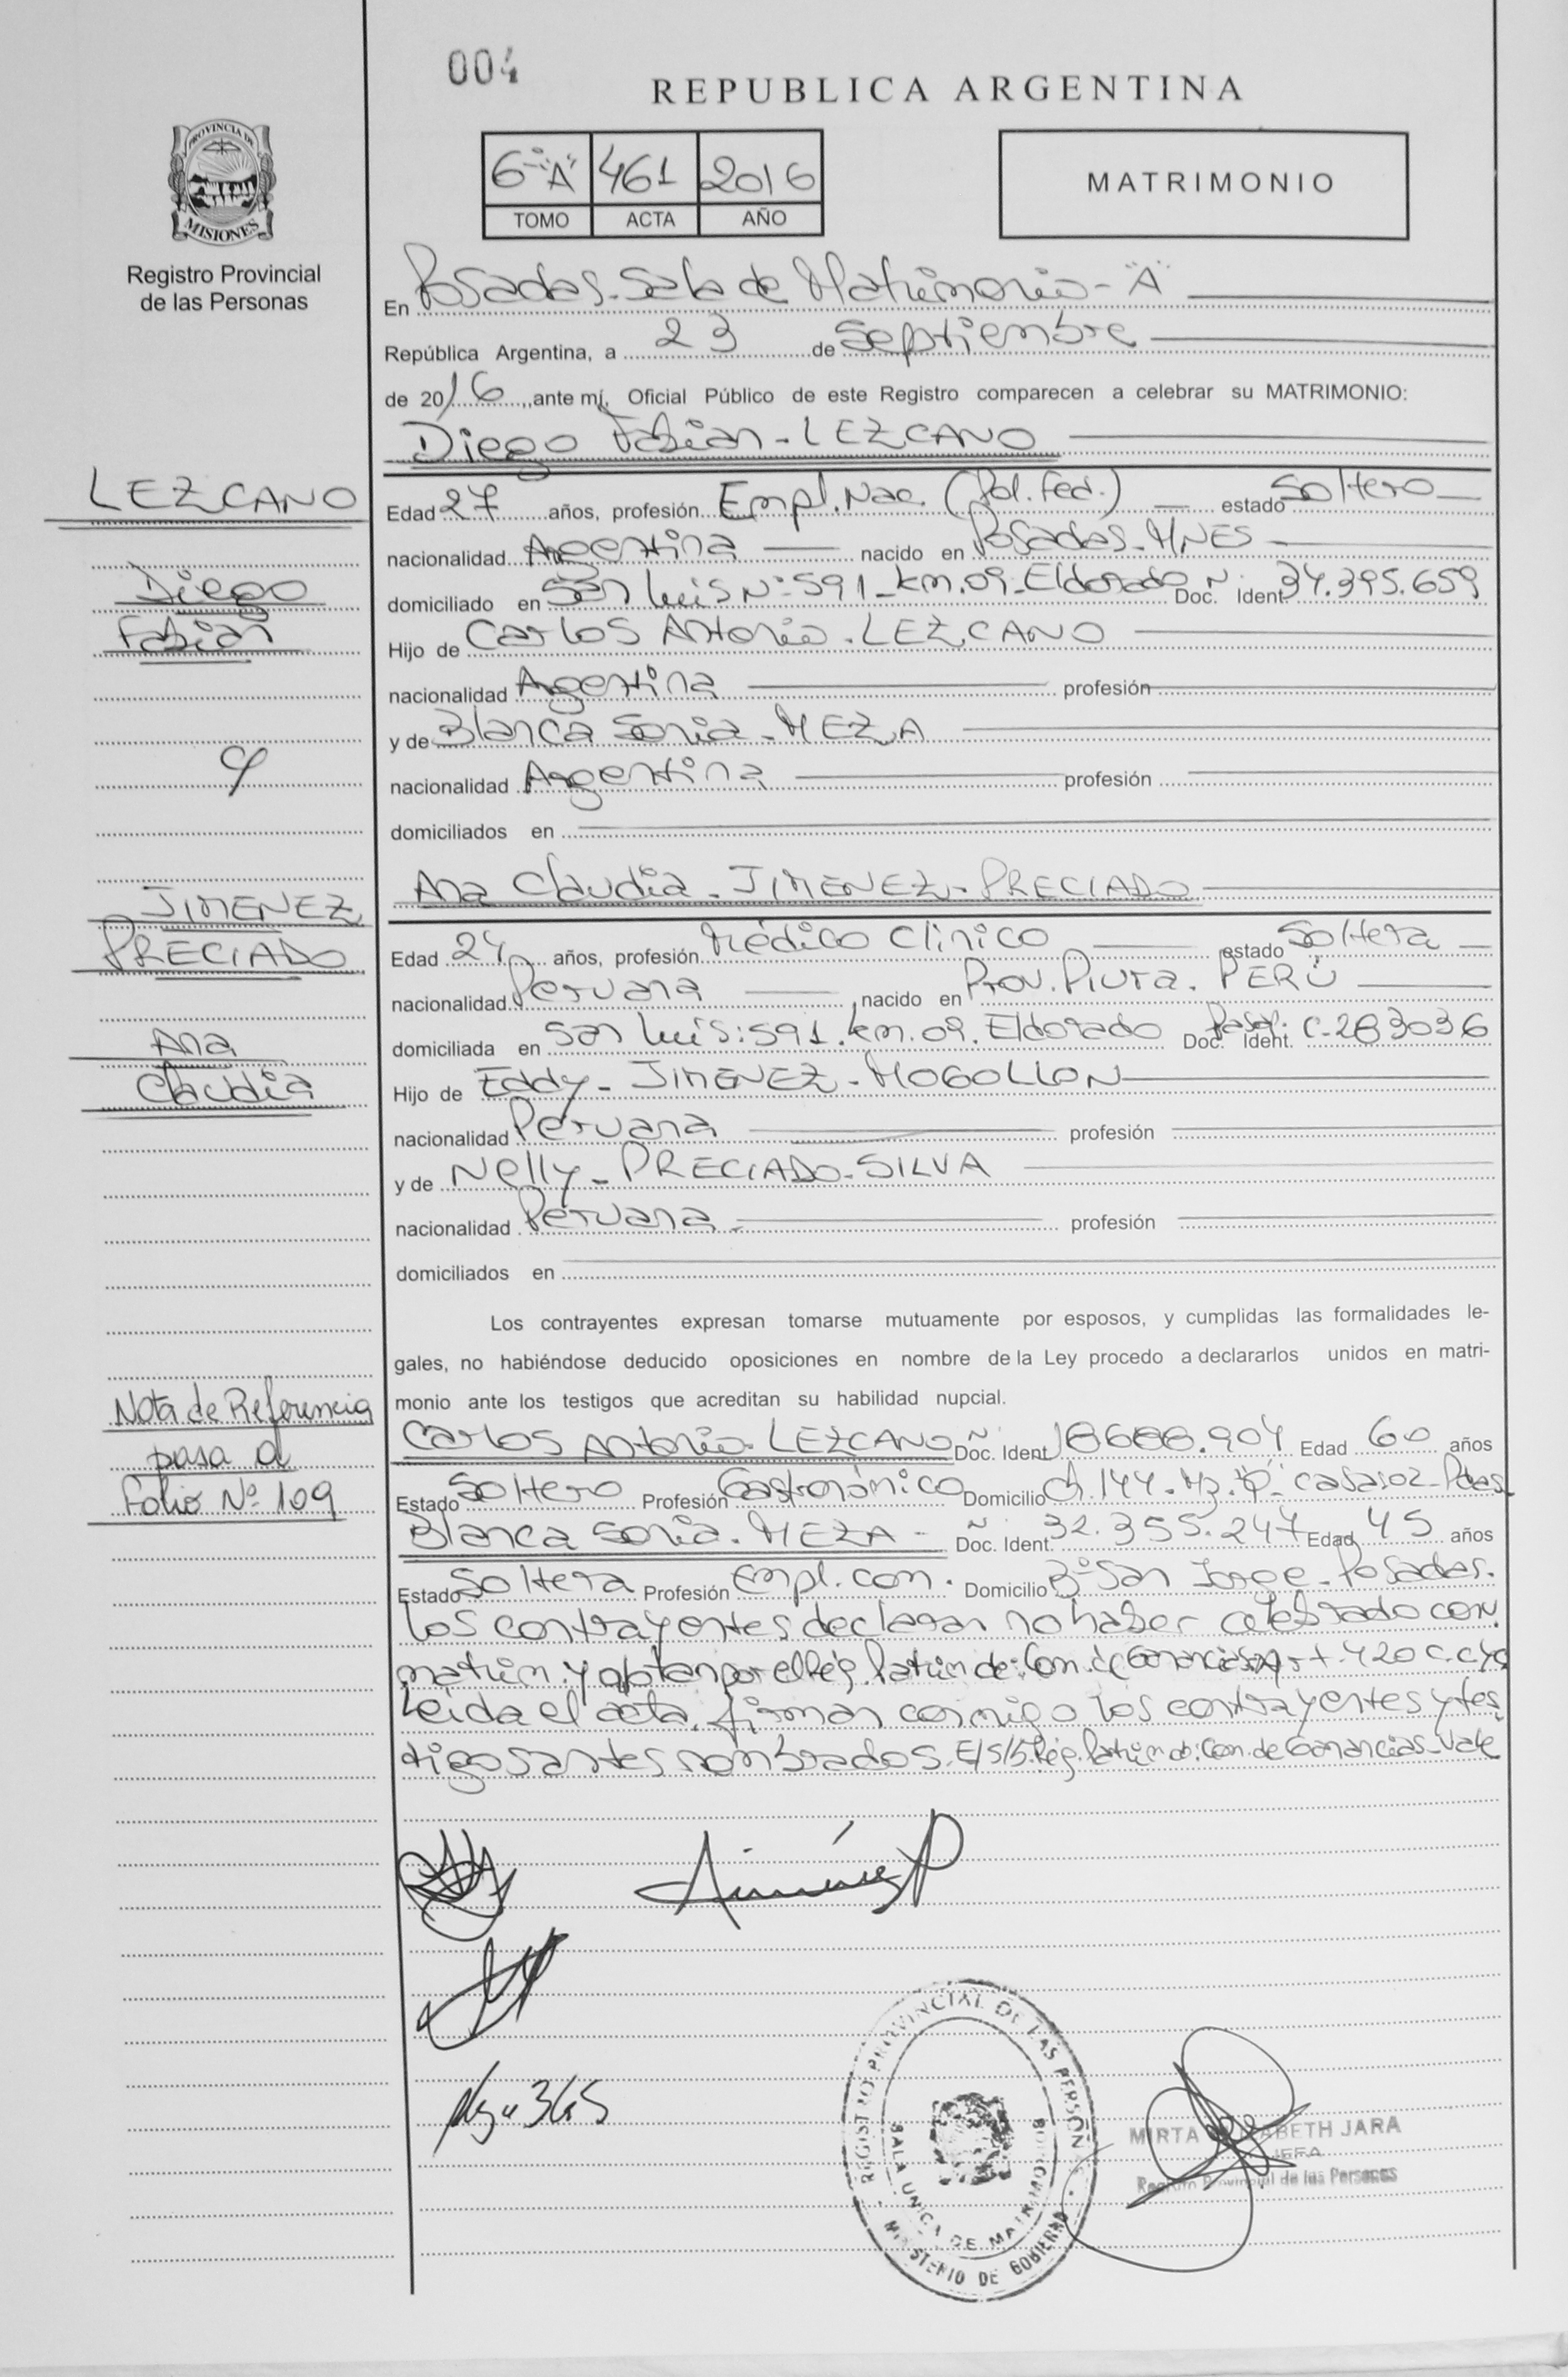 004
REPUBLICA ARGENTINA
PROVINCIA DE
MISIONES
Registro Provincial
de las Personas
6º "A" 461 2016
TOMO ACTA AÑO
MATRIMONIO
En Posadas. Sala de Matrimonio - "A"
República Argentina, a 23 de Septiembre
de 2016, ante mí, Oficial Público de este Registro comparecen a celebrar su MATRIMONIO:
Diego Fabian - LEZCANO
LEZCANO
Diego
Fabian
Edad 27 años, profesión Empl. Nac. (Pol. Fed.) estado Soltero
nacionalidad Argentina nacido en Posadas - MNES
domiciliado en San Luis Nº 591 - km. 09 - Eldorado Doc. Ident. 34.395.659
Hijo de Carlos Antonio. LEZCANO
nacionalidad Argentina profesión
y de Blanca Sonia - MEZA
nacionalidad Argentina profesión
domiciliados en
Ana Claudia - JIMENEZ - PRECIADO
JIMENEZ
PRECIADO
Ana
Claudia
Edad 24 años, profesión Médico Clínico estado Soltera
nacionalidad Peruana nacido en Prov. Piura. PERÚ
domiciliada en San Luis: 591. km. 09. Eldorado Doc. Ident. Pasap. C-283036
Hijo de Eddy - JIMENEZ - MOGOLLON
nacionalidad Peruana profesión
y de Nelly - PRECIADO - SILVA
nacionalidad Peruana profesión
domiciliados en
Los contrayentes expresan tomarse mutuamente por esposos, y cumplidas las formalidades le-
gales, no habiéndose deducido oposiciones en nombre de la Ley procedo a declararlos unidos en matri-
monio ante los testigos que acreditan su habilidad nupcial.
Nota de Referencia
pasa al
Folio Nº 109
Carlos Antonio. LEZCANO Doc. Ident. Edad 60 años
Estado Soltero Profesión Gastronómico Domicilio Ch. 144 - Mz. casa 02 - Pdas.
Blanca Sonia. MEZA - Doc. Ident. 32.355.247 Edad 45 años
Estado Soltera Profesión Empl. com. Domicilio Bº San Jorge - Posadas.
Los contrayentes declaran no haber celebrado con.
matrim. y optan por el Rég. Patrim. de: Com. de Ganancias 420 C.C.
Leída el acta, firman conmigo los contrayentes y tes
tigos antes nombrados. E/S/S. Rég. Patrim. de: Com. de Ganancias - Vale
Jiménez P
REGISTRO PROVINCIAL DE LAS PERSONAS
SALA UNICA DE MATRIMONIOS
MINISTERIO DE GOBIERNO
MIRTA ELIZABETH JARA
JEFA
Registro Provincial de las Personas